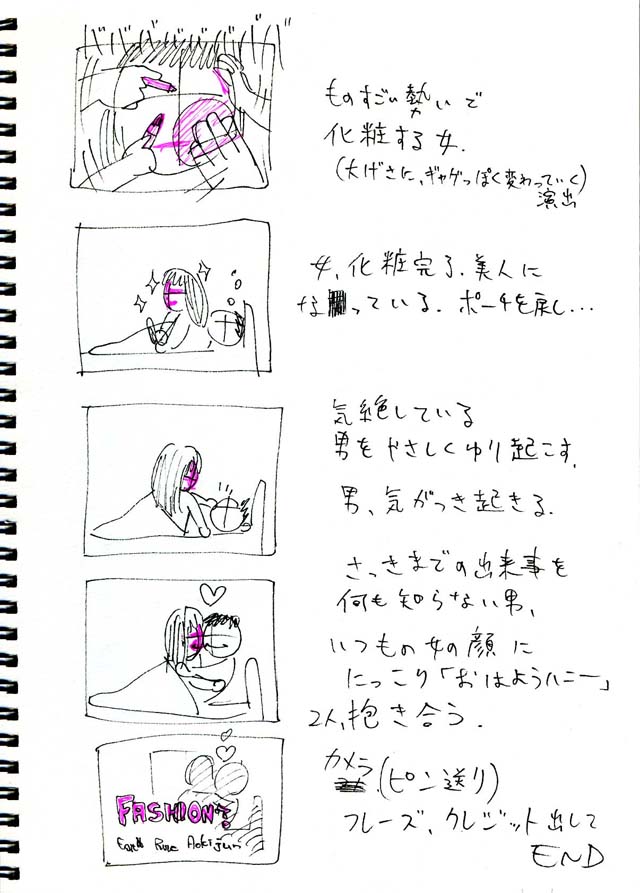 ものすごい勢いで
化粧する女.
(大げさに、ギャグっぽく変わっていく)
演出
女、化粧完了.美人に
なっている. ポーチを戻し...
気絶している
男をやさしくゆり起こす.
男、気がつき起きる.
さっきまでの出来事を
何も知らない男、
いつもの女の顔に
にっこり「おはようハニー」
2人、抱き合う.
カメラ.(ピン送り)
FASHION?
フレーズ、クレジット出して
Earth Pure Aokijun
END